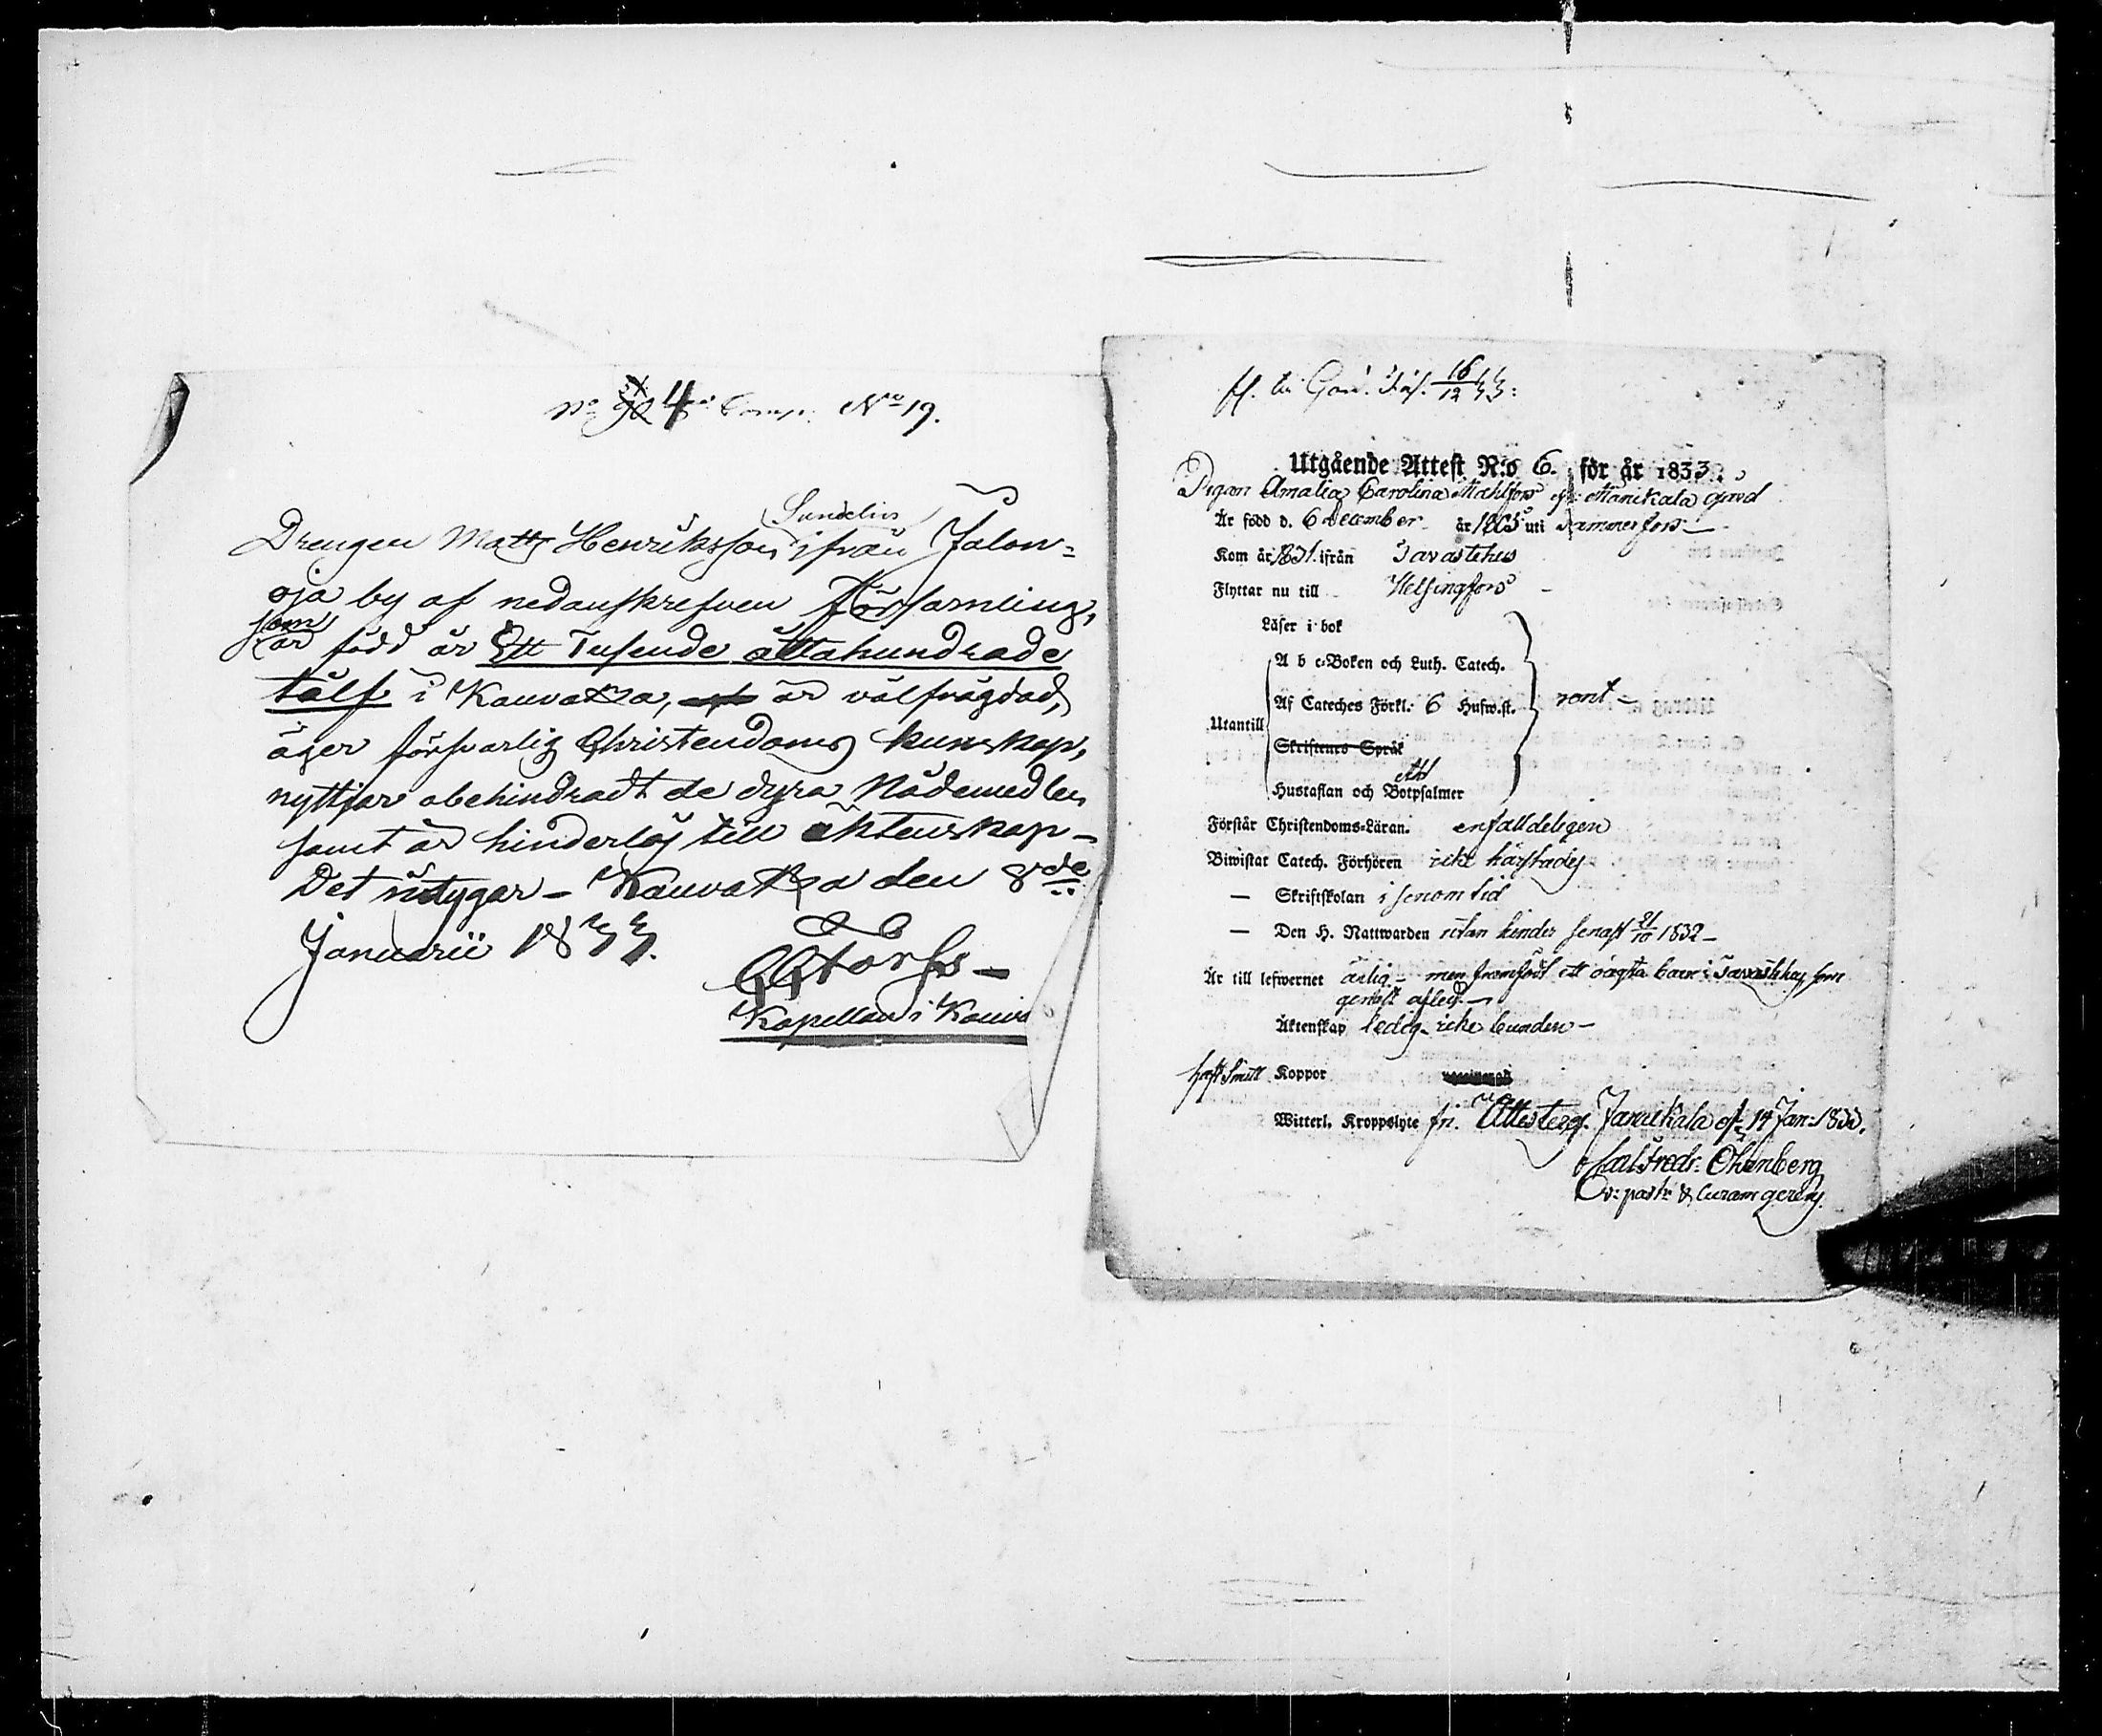 No 90 4 Comp. No 19.
Sundelius
Drengen Matts Henriksson ifrån Jalon-
oja by af nedanskrefven församling,
som
är född år Ett Tusende åttahundrade
tålf i Kauvatza, är välfrägdad,
äger försvarlig Christendoms kunskap,
nyttjar obehindradt de dyra Nådemedlen
samt är hinderlös till äktenskap -
Det intygar - Kauvatza den 8de
Januarii 1833.
Kapellan i Kauva
16/12 33:
Utgående Attest N:o 6. för år 1833.
Pigan Amalia Carolina Mahlfors Manikala gård
Är född d. 6 December år 1805 uti Tammerfors -
Kom år 1831 ifrån Tavastehus
Flyttar nu till Helsingfors -
Läser i bok
A b c-Boken och Luth. Catech.
Af Cateches Förkl. 6 Hufw.st. rent -
Utantill
Skriftenes Språk
Hustaflan och Botpsalmer
Förstår Christendoms-Läran. enfalldeligen
Biwistat Catech. Förhören icke härstädes
— Skriftskolan i senom tid
— Den H. Nattwarden utan hinder senast 21/10 1832 -
Är till lefwernet ärlig - men framfödt ett oägta barn i Tavastehus som
genast afled -
Äktenskap ledig - icke bunden -
haft Smitt Koppor
Witterl. Kroppslyte fri. Attesterar Janakkala 14 Jan: 1833.
Öhrnberg